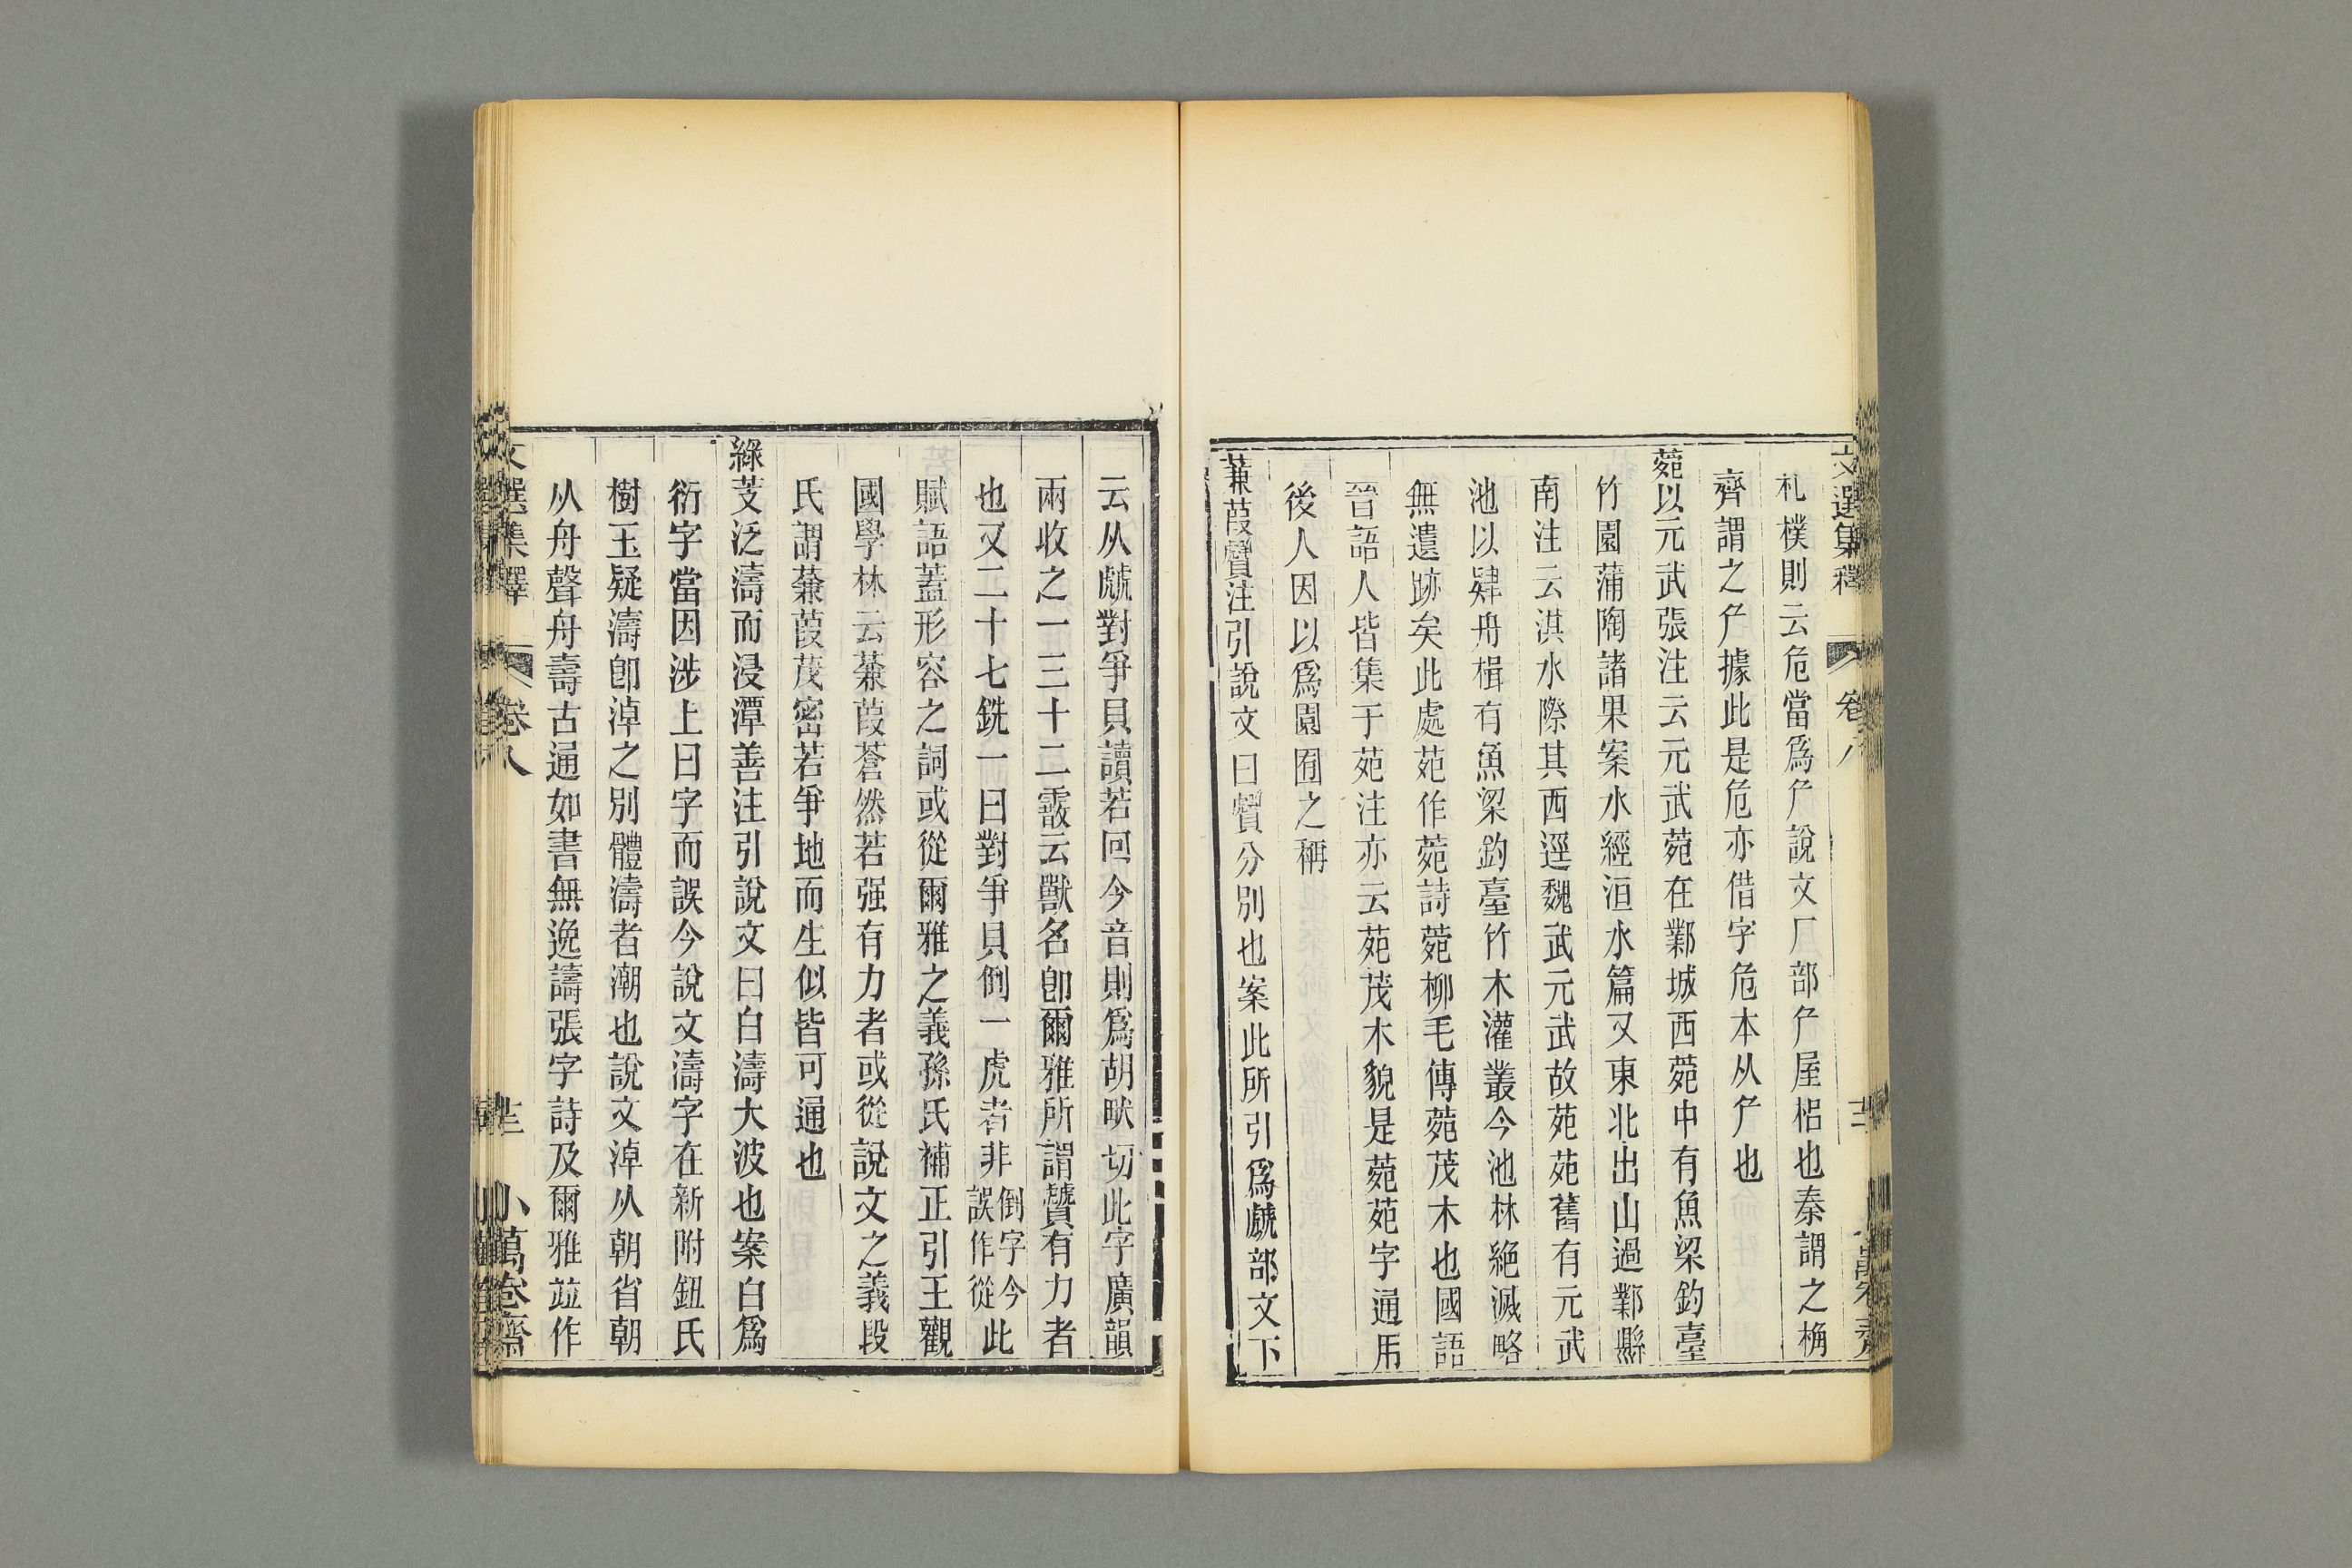 文選集釋 卷八
札樸則云危當爲厃說文厂部厃屋梠也秦謂之桷
齊謂之厃據此是危亦借字危本从厃也
菀以元武張注云元武菀在鄴城西菀中有魚梁釣臺
竹園蒲陶諸果案水經洹水篇又東北出山過鄴縣
南注云淇水際其西逕魏武元武故苑苑舊有元武
池以肄舟楫有魚梁釣臺竹木灌叢今池林絕滅略
無遺跡矣此處苑作菀詩菀柳毛傳菀茂木也國語
晉語人皆集于苑注亦云苑茂木貌是菀苑字通用
後人因以爲園囿之稱
蒹葭贙注引說文曰贙分別也案此所引爲虤部文下
云从虤對爭貝讀若回今音則爲胡畎切此字廣韻
兩收之一三十二霰云獸名卽爾雅所謂贙有力者
也又二十七銑一曰對爭貝倒一虎者非倒字今誤作從此
賦語蓋形容之詞或從爾雅之義孫氏補正引王觀
國學林云蒹葭蒼然若强有力者或從說文之義段
氏謂蒹葭茂密若爭地而生似皆可通也
綠芰泛濤而浸潭善注引說文曰白濤大波也案白爲
衍字當因涉上曰字而誤今說文濤字在新附鈕氏
樹玉疑濤卽淖之別體濤者潮也說文淖从朝省朝
从舟聲舟壽古通如書無逸譸張字詩及爾雅竝作
文選集釋 卷八 小萬卷齋